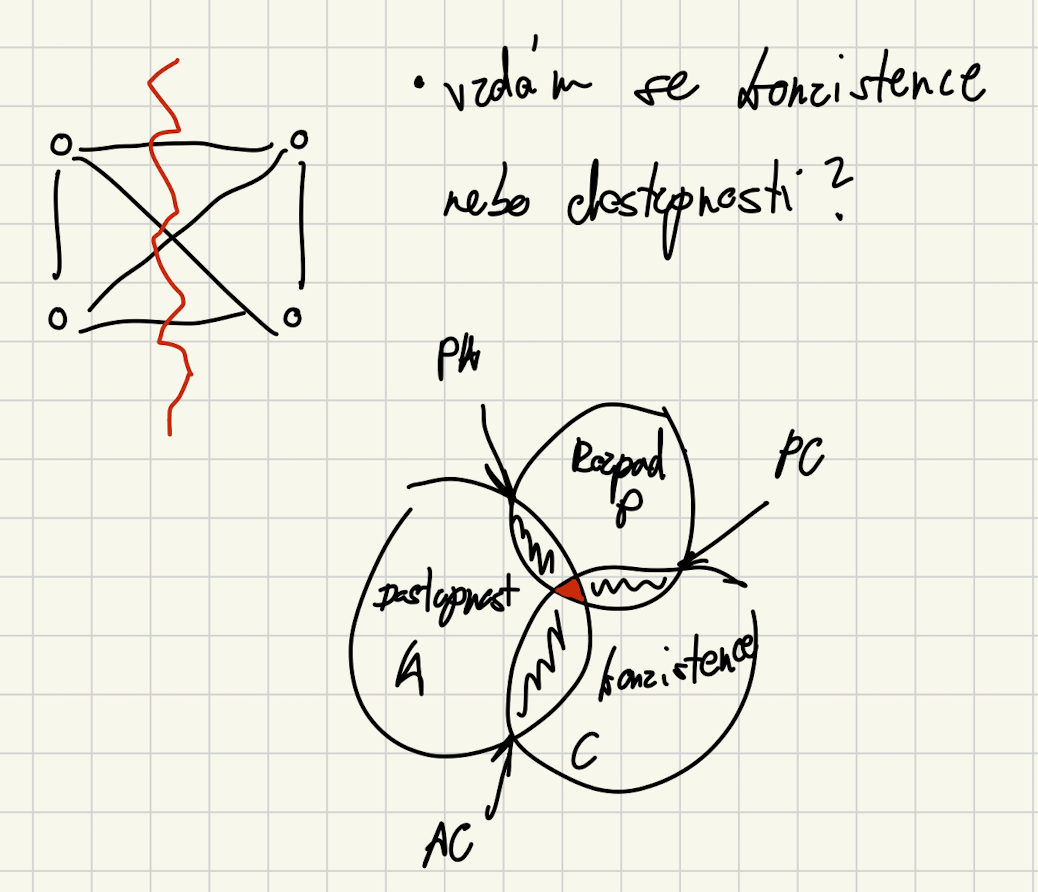 • vzdám se konzistence
nebo dostupnosti?
PA
Rozpad
P
PC
Dostupnost
A
konzistence
C
AC